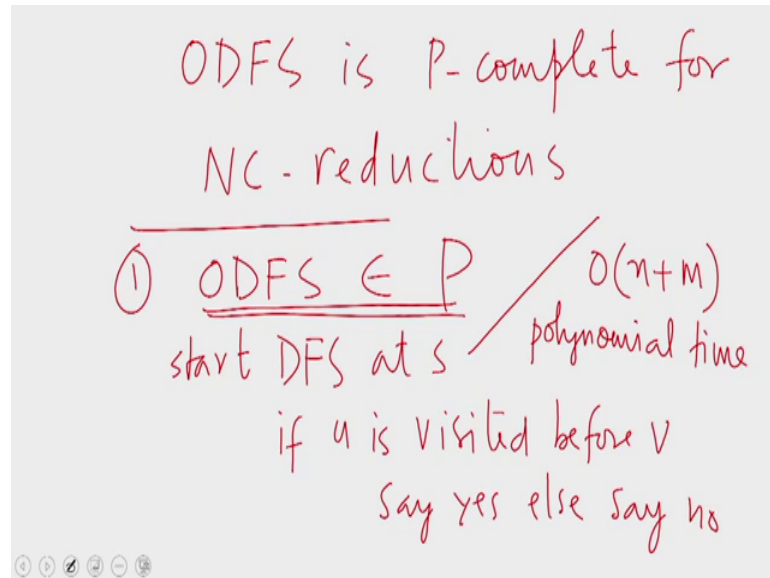 ODFS is P-complete for
NC-reductions
① ODFS ∈ P
O(n+m)
polynomial time
start DFS at s
if u is visited before v
say yes else say no